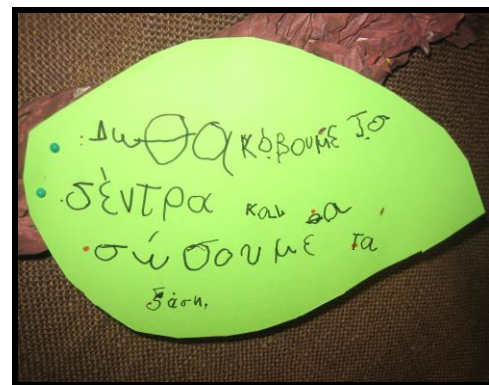 Δω θα κόβουμε το
δέντρα και θα
σώσουμε τα
δάση.